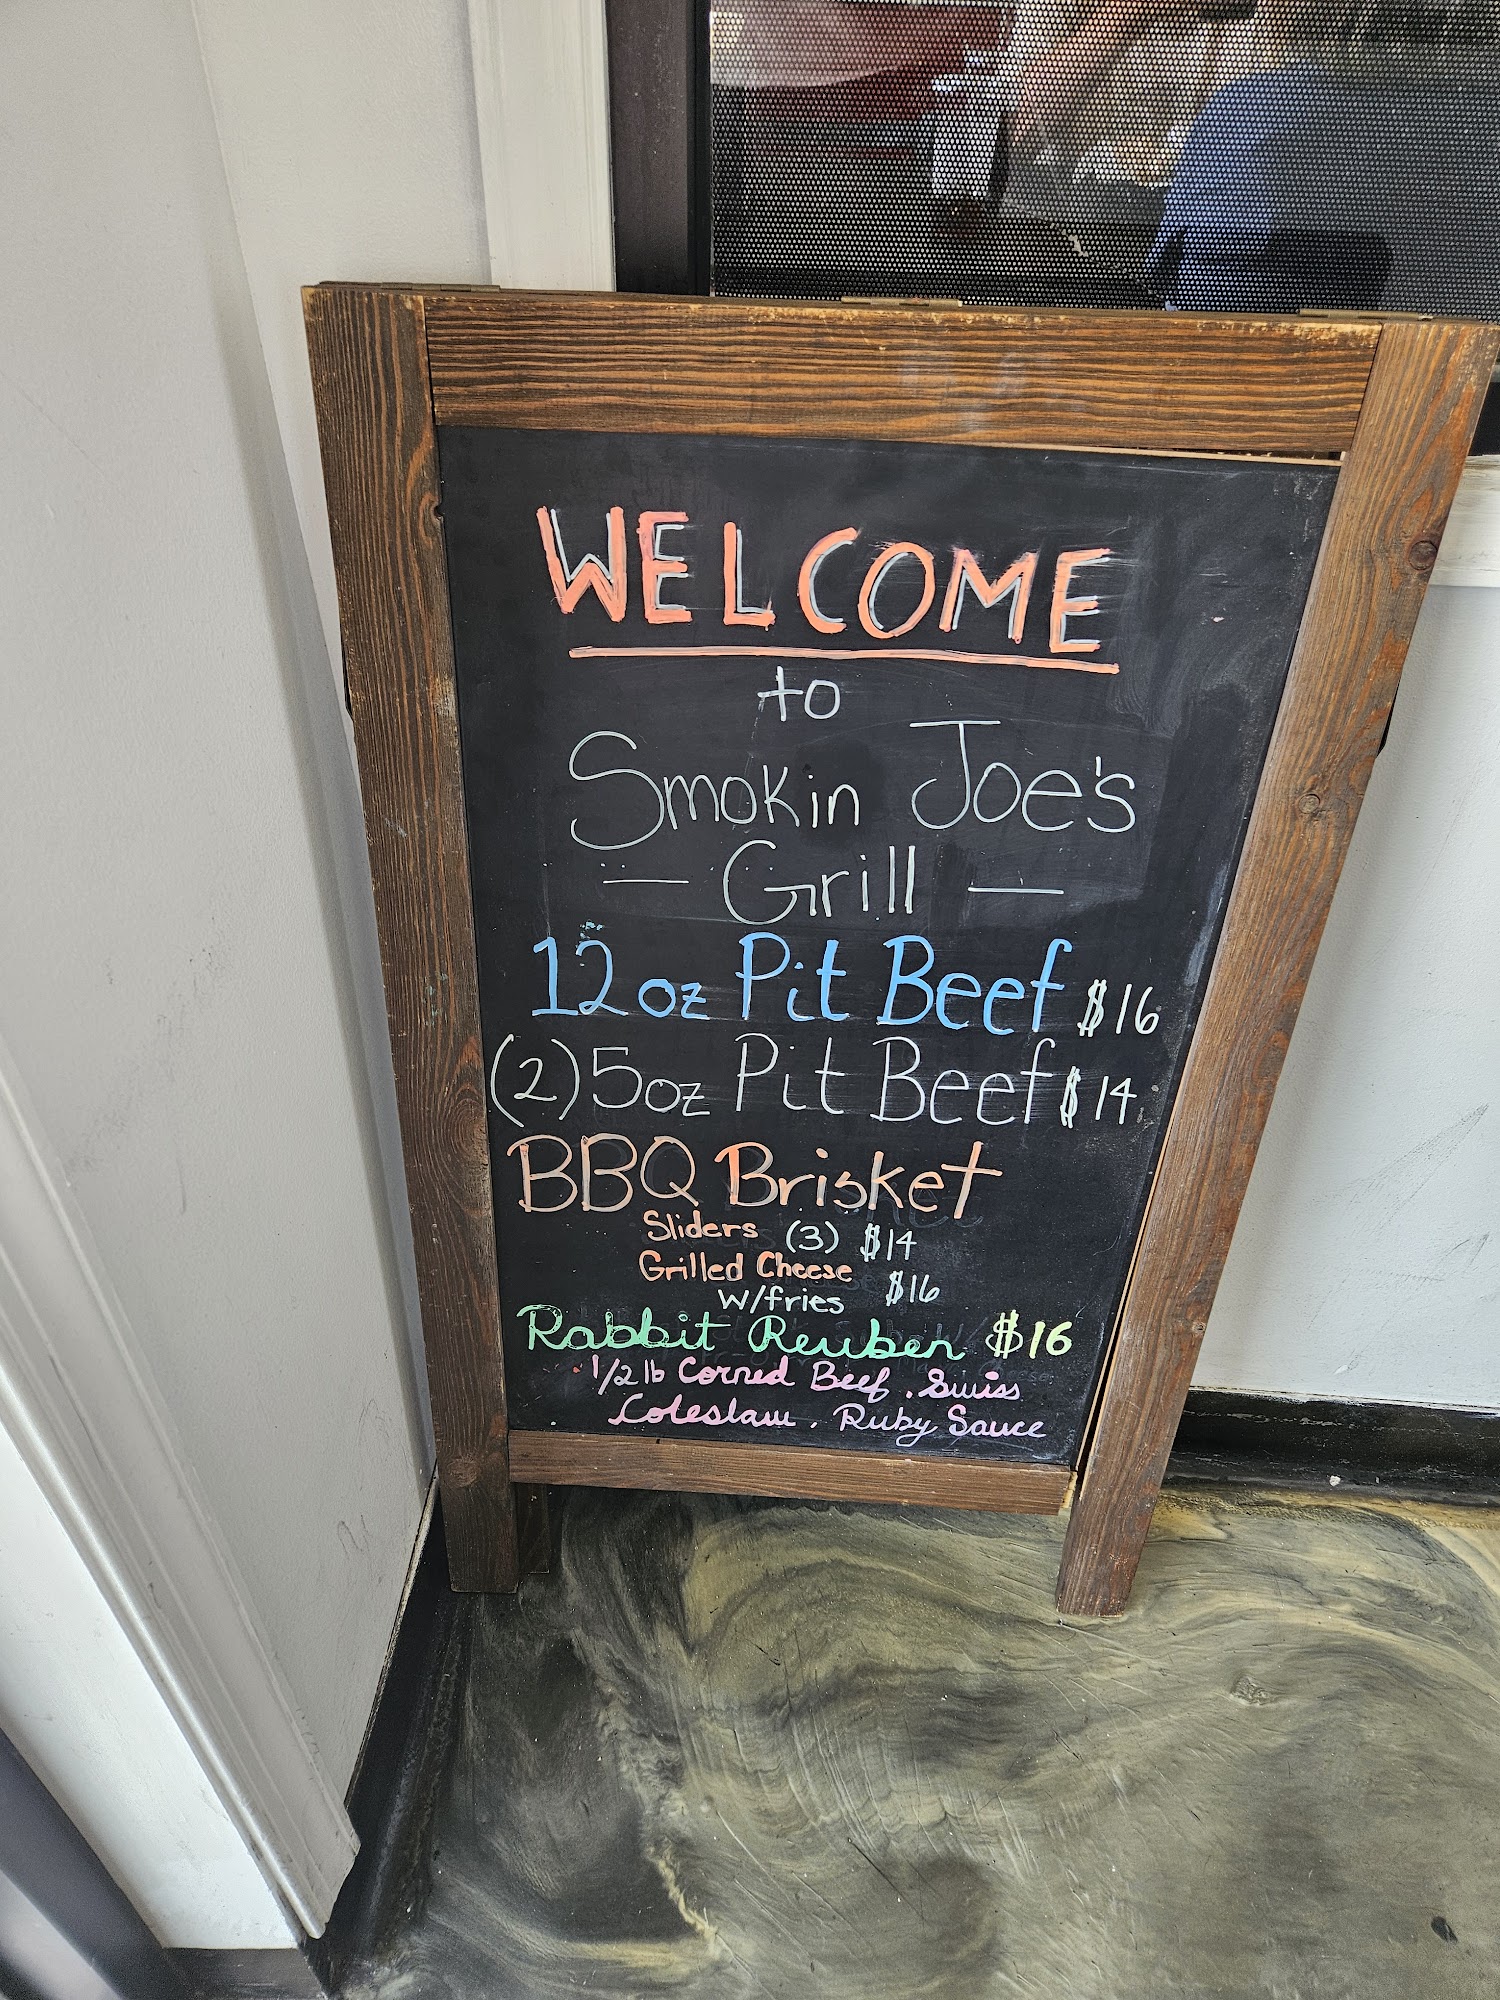 WELCOME
to
Smokin Joe's
— Grill —
12 oz Pit Beef $16
(2) 5oz Pit Beef $14
BBQ Brisket
Sliders (3) $14
Grilled Cheese
w/fries $16
Rabbit Reuben $16
1/2 lb Corned Beef. Swiss
Coleslaw. Ruby Sauce